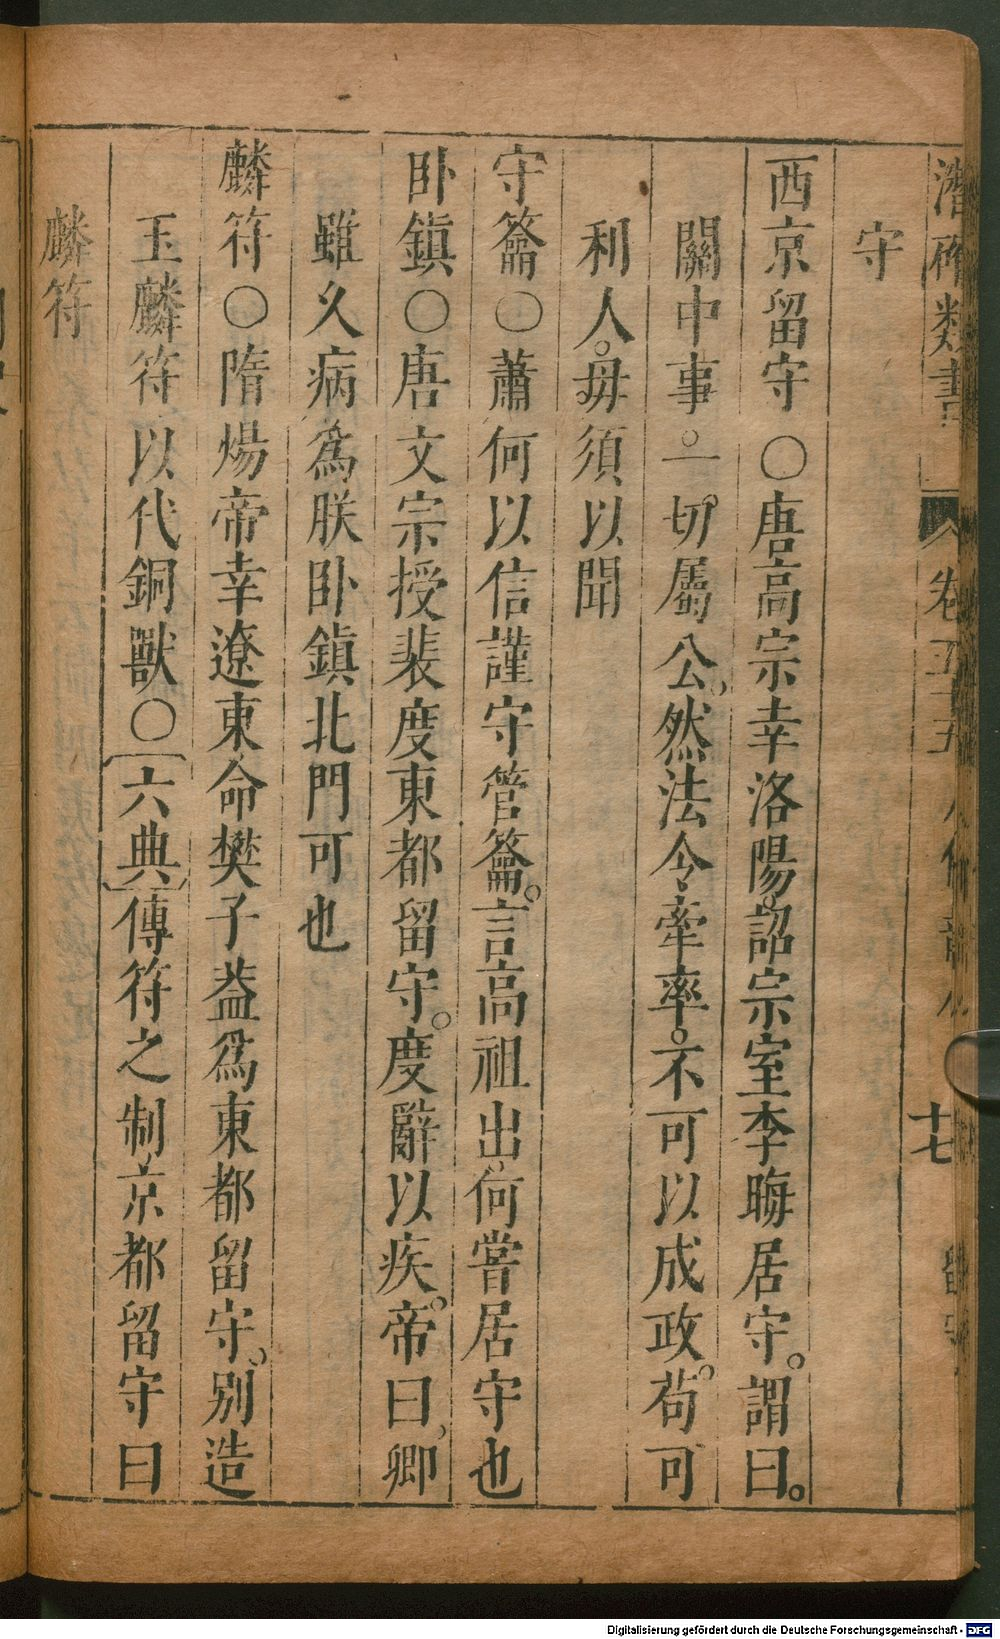 潛確類書 卷五十五 十七
守
西京留守 〇唐高宗幸洛陽詔宗室李晦居守。謂曰。
關中事。一切屬公。然法令牽率。不可以成政。苟可
利人。毋須以聞
守籥〇蕭何以信謹守管籥。言高祖出何嘗居守也
卧鎮〇唐文宗授裴度東都留守。度辭以疾。帝曰、卿
雖久病爲朕卧鎮北門可也
麟符〇隋煬帝幸遼東命樊子葢爲東都留守。別造
玉麟符以代銅獸〇〔六典〕傳符之制京都留守曰
麟符
Digitalisierung gefördert durch die Deutsche Forschungsgemeinschaft - DFG